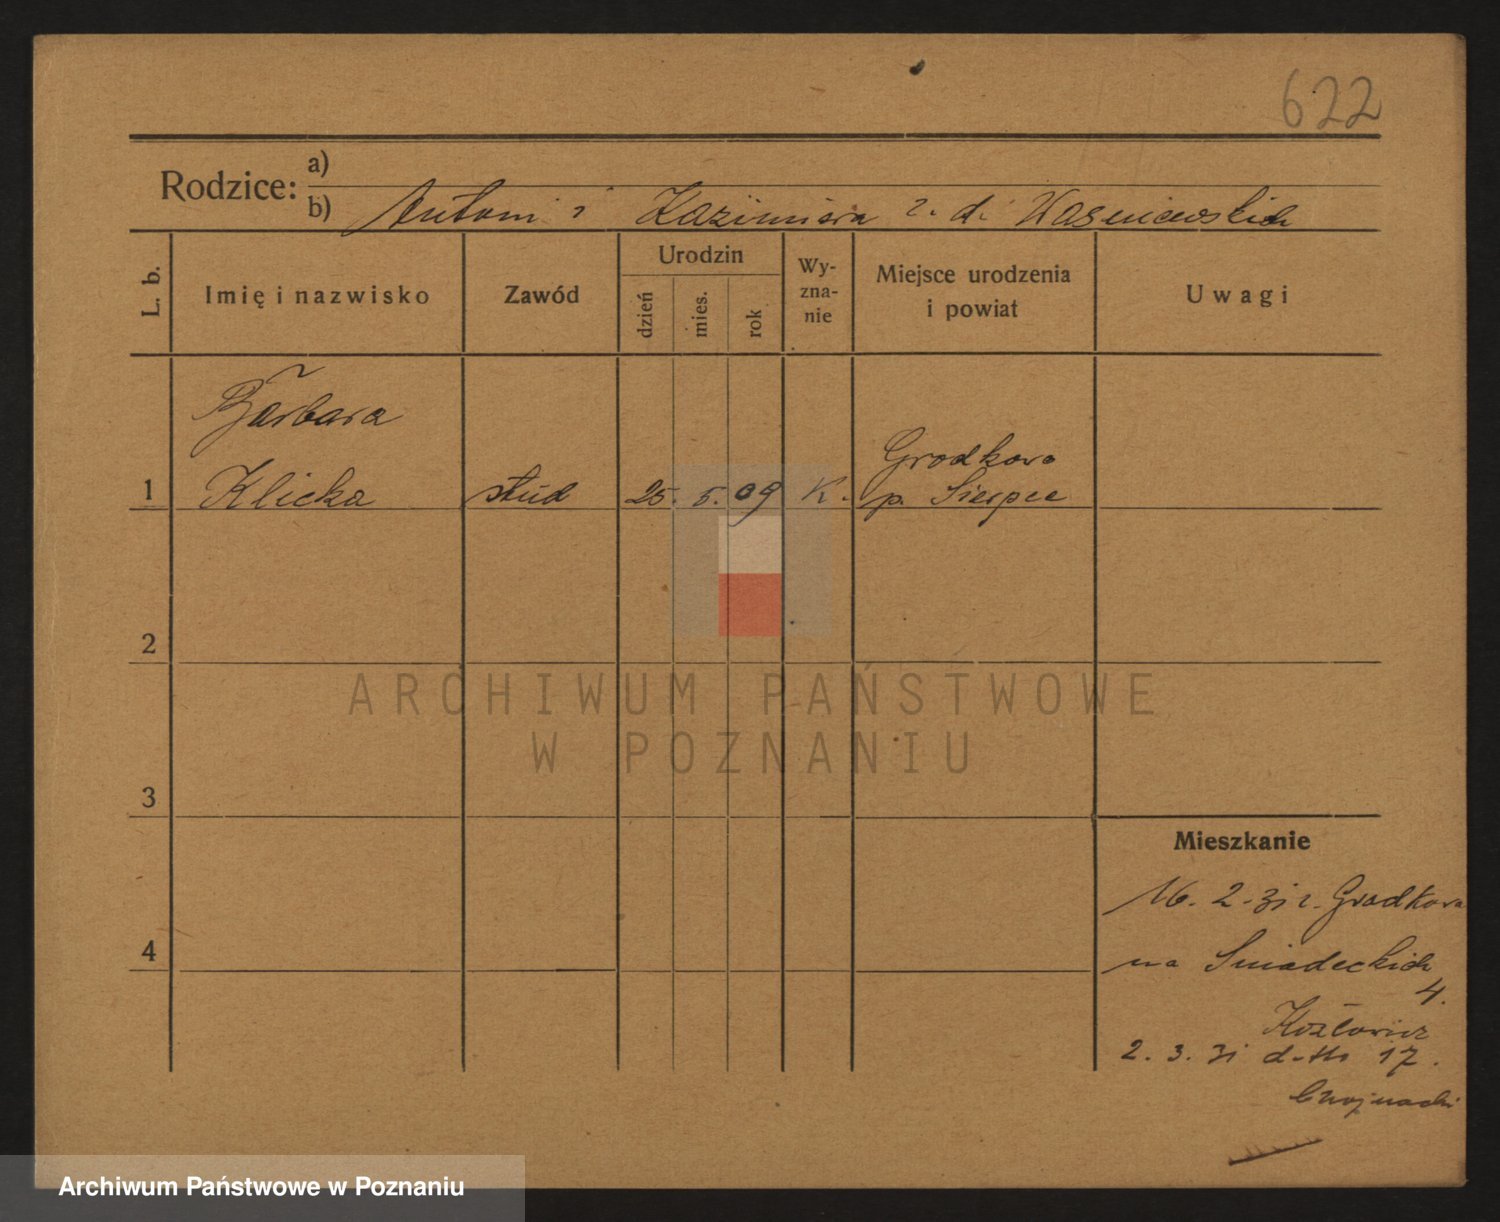 622
Rodzice: a)
b) Antoni i Kazimiera z. d. Waśniewskich
L. b.
Imię i nazwisko
Zawód
Urodzin
dzień
mies.
rok
Wy-
zna-
nie
Miejsce urodzenia
i powiat
Uwagi
Barbara
1 Klicka stud 25. 5. 09 K. Grodkowo
p. Sierpce
2
3
4
ARCHIWUM PAŃSTWOWE
W POZNANIU
Mieszkanie
16. 2. 31 z. Grodkowa
na Śniadeckich
4.
Kozłowicz
2. 3. 31 d-tto 17.
Chojnacki
Archiwum Państwowe w Poznaniu